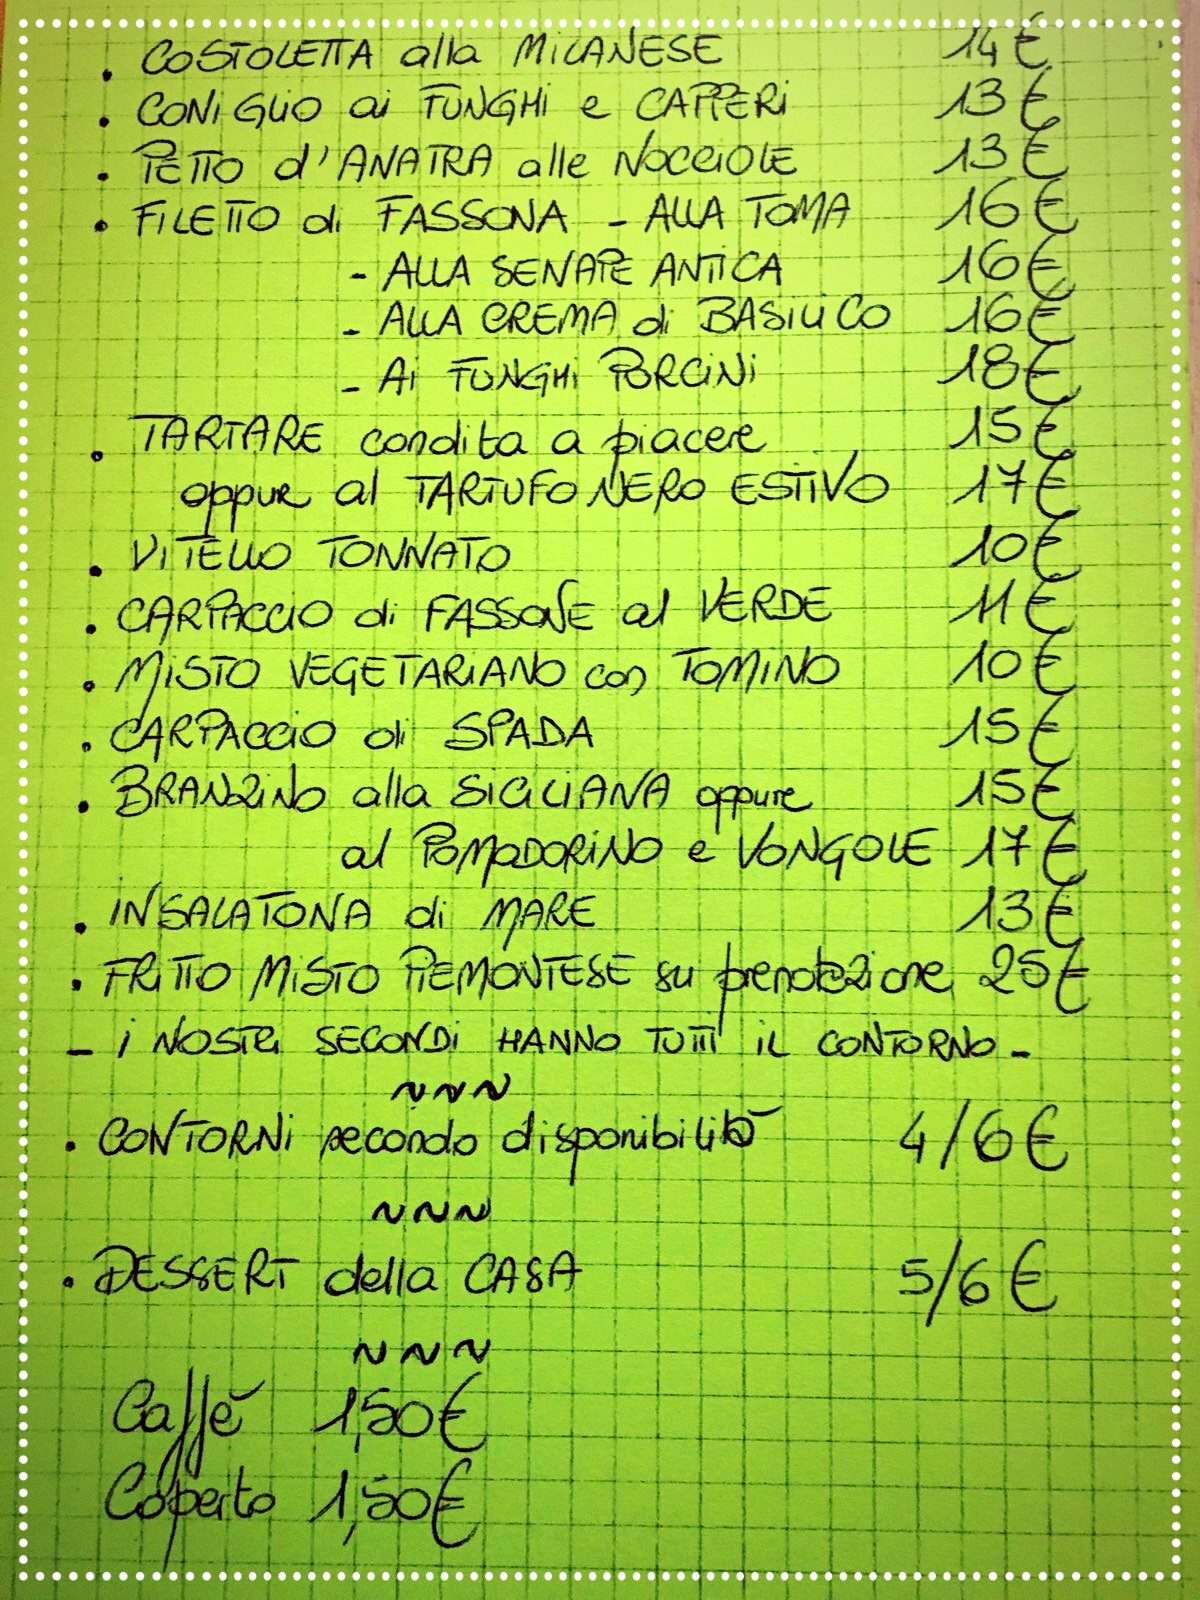 . COSTOLETTA alla MILANESE 14€
. CONIGLIO ai FUNGHI e CAPPERI 13€
. PETTO d'ANATRA alle NOCCIOLE 13€
. FILETTO di FASSONA - ALLA TOMA 16€
- ALLA SENAPE ANTICA 16€
- ALLA CREMA di BASILICO 16€
- Ai FUNGHI PORCINI 18€
. TARTARE condita a piacere 15€
oppure al TARTUFO NERO ESTIVO 17€
. VITELLO TONNATO 10€
. CARPACCIO di FASSONE al VERDE 11€
. MISTO VEGETARIANO con TOMINO 10€
. CARPACCIO di SPADA 15€
. BRANZINO alla SICILIANA oppure 15€
al POMODORINO e VONGOLE 17€
. INSALATONA di MARE 13€
. FRITTO MISTO PIEMONTESE su prenotazione 25€
- i NOSTRI SECONDI HANNO TUTTI IL CONTORNO -
~~~
. CONTORNI secondo disponibilità 4/6€
~~~
. DESSERT della CASA 5/6€
~~~
Caffè 1,50€
Coperto 1,50€